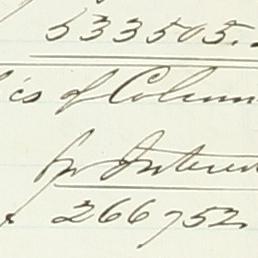 533505.
of Colum
for Interes
266752.